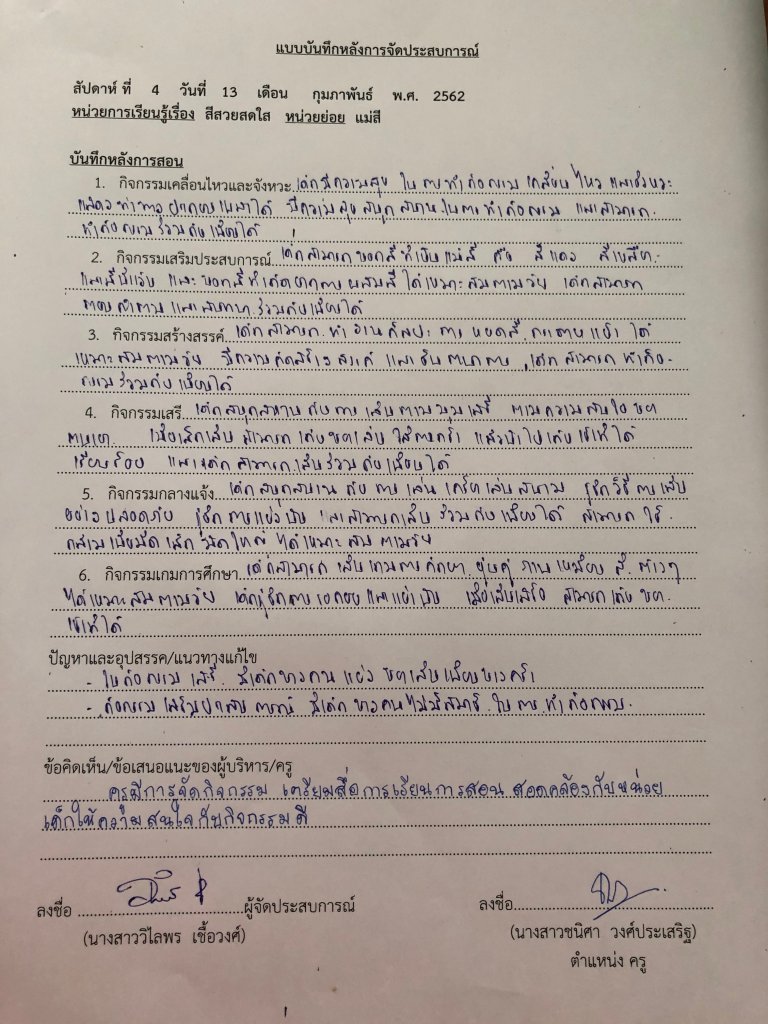 แบบบันทึกหลังการจัดประสบการณ์
สัปดาห์ ที่ 4 วันที่ 13 เดือน กุมภาพันธ์ พ.ศ. 2562
หน่วยการเรียนรู้เรื่อง สีสวยสดใส หน่วยย่อย แม่สี
บันทึกหลังการสอน
1. กิจกรรมเคลื่อนไหวและจังหวะ เด็กมีความสุข ในการทำกิจกรรม เคลื่อนไหว และจังหวะ
แสดงท่าทาง ประกอบเพลงได้ มีความสุขสนุกสนานในการทำกิจกรรม และสามารถ
ทำกิจกรรมร่วมกับเพื่อนได้
2. กิจกรรมเสริมประสบการณ์ เด็กสามารถบอกสีที่เป็นแม่สี คือ สีแดง สีเหลือง
และสีน้ำเงิน และบอกสีที่เกิดจากการผสมสีได้เหมาะสมตามวัย เด็กสามารถ
ตอบคำถามและสนทนาร่วมกับเพื่อนได้
3. กิจกรรมสร้างสรรค์ เด็กสามารถทำงานศิลปะ การหยดสี กระดาษ ได้
เหมาะสมตามวัย มีความคิดสร้างสรรค์ และจินตนาการ เด็กสามารถทำกิจ
กรรมร่วมกับเพื่อนได้
4. กิจกรรมเสรี เด็กสนุกสนานกับการเล่นตามมุมเสรี ตามความสนใจของ
ตนเอง เมื่อเลิกเล่นสามารถเก็บของเล่นใส่ตะกร้า แล้วนำไปเก็บเข้าที่ได้
เรียบร้อย และเด็กสามารถเล่นร่วมกับเพื่อนได้
5. กิจกรรมกลางแจ้ง เด็กสนุกสนานกับการเล่นเครื่องเล่นสนาม รู้จักวิธีการเล่น
อย่างปลอดภัย รู้จักการแบ่งปัน และสามารถเล่นร่วมกับเพื่อนได้ สามารถใช้
กล้ามเนื้อมัดเล็ก มัดใหญ่ ได้เหมาะสมตามวัย
6. กิจกรรมเกมการศึกษา เด็กสามารถเล่นเกมการศึกษา จับคู่ภาพเหมือน สีต่างๆ
ได้เหมาะสมตามวัย เด็กรู้จักการรอคอยและแบ่งปัน เมื่อเล่นเสร็จ สามารถเก็บของ
เข้าที่ได้
ปัญหาและอุปสรรค/แนวทางแก้ไข
- ในกิจกรรมเสรี มีเด็กบางคนแย่งของเล่นเพื่อนบางครั้ง
- กิจกรรมเสริมประสบการณ์ มีเด็กบางคนไม่มีสมาธิในการทำกิจกรรม
ข้อคิดเห็น/ข้อเสนอแนะของผู้บริหาร/ครู
ครูมีการจัดกิจกรรม เตรียมสื่อการเรียนการสอน สอดคล้องกับหน่วย
เด็กให้ความสนใจกับกิจกรรมดี
ลงชื่อ ผู้จัดประสบการณ์
(นางสาววิไลพร เชื้อวงศ์)
ลงชื่อ
(นางสาวชนิศา วงศ์ประเสริฐ)
ตำแหน่ง ครู